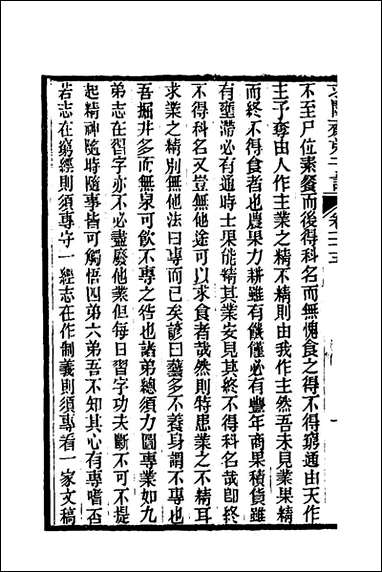 求闕齋弟子記 卷二十五
不至尸位素餐而後得科名而無愧食之得不得窮通由天作
主予奪由人作主業之精不精則由我作主然吾未見業果精
而終不得食者也農果力耕雖有饑饉必有豐年商果積貨雖
有壅滯必有通時士果能精其業安見其終不得科名哉卽終
不得科名又豈無他途可以求食者哉然則特患業之不精耳
求業之精別無他法曰專而已矣諺曰藝多不養身謂不專也
吾掘井多而無泉可飲不專之咎也諸弟總須力圖專業如九
弟志在習字亦不必盡廢他業但每日習字功夫斷不可不提
起精神隨時隨事皆可觸悟四弟六弟吾不知其心有專嗜否
若志在窮經則須專守一經志在作制義則須專看一家文稿